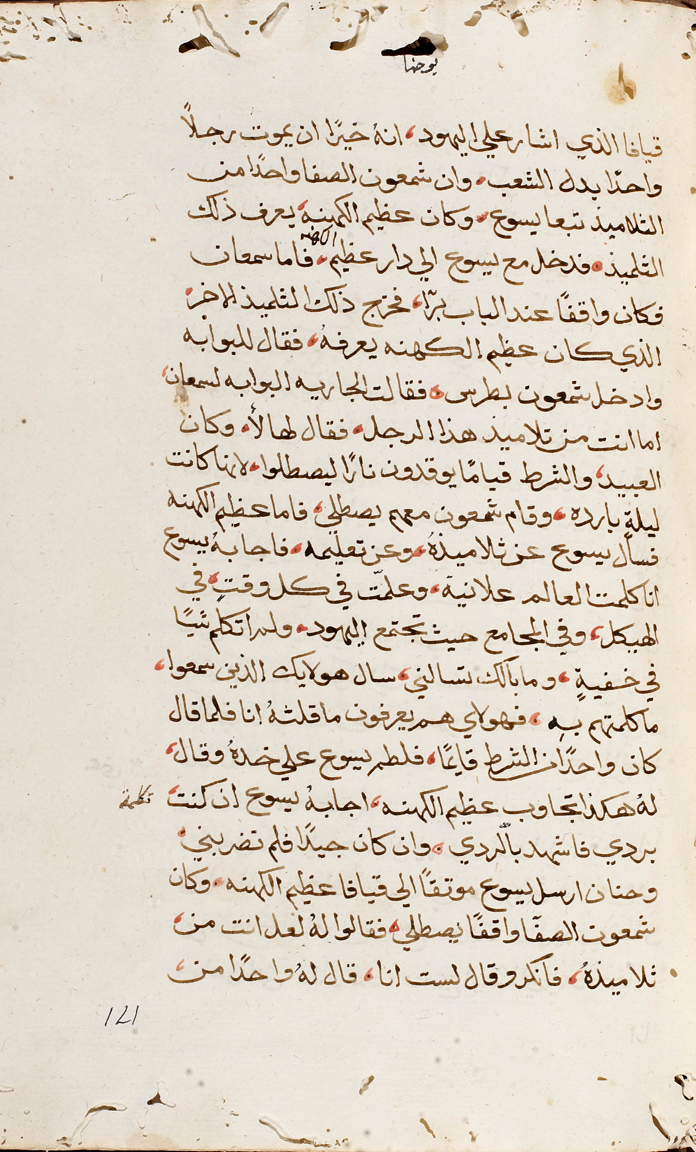 يوحنا
قيافا الذي اشار علي اليهود، انهُ خيرًا ان يموت رجلًا
واحدًا بدل الشعب، وان شمعون الصفا واحدًا من
التلاميذ تبعا يسوع، وكان عظيم الكهنه يعرف ذلك
التلميذ، فدخل مع يسوع الي دار عظيم الكهنه، فاما سمعان
فكان واقفًا عند الباب برّا، فخرج ذلك التلميذ الاخر،
الذي كان عظيم الكهنه يعرفهُ، فقال للبوابه
وادخل شمعون بطرس، فقالت الجاريه البوابه لسمعان،
اما انت من تلاميذ هذا الرجل، فقال لها لأ، وكان
العبيد، والشرط قيامًا يوقدون نارًا ليصطلوا، لانها كانت
ليلةٍ بارده، وقام شمعون معهم يصطلي، فاما عظيم الكهنه
فسأل يسوع عن تلاميذهُ، وعن تعليمه، فاجابهُ يسوع
انا كلمت العالم علانية، وعلمّت في كل وقتٍ، في
الهيكل، وفي المجامع حيث تجتمع اليهود، ولم اتكلم شيًا
في خفيةٍ، وما بالك تسالني، سال هولايك الذين سمعوا،
ما كلمتهم بهِ، فهولاي هم يعرفون ما قلتهُ انا فلما قال
كان واحدًا من الشرط قايمًا، فلطم يسوع علي خدهُ وقال،
لهُ هكذا تجاوب عظيم الكهنه، اجابهُ يسوع ان كنت، تكلمة
بردي فاشهد بالردي، وان كان جيدًا فلم تضربني،
وحنان ارسل يسوع موتقًا الي قيافا عظيم الكهنه، وكان
شمعون الصفا واقفًا يصطلي، فقالوا لهُ لعل انت من،
تلاميذهُ، فانكر وقال لست انا، قال لهُ واحدًا من،
121